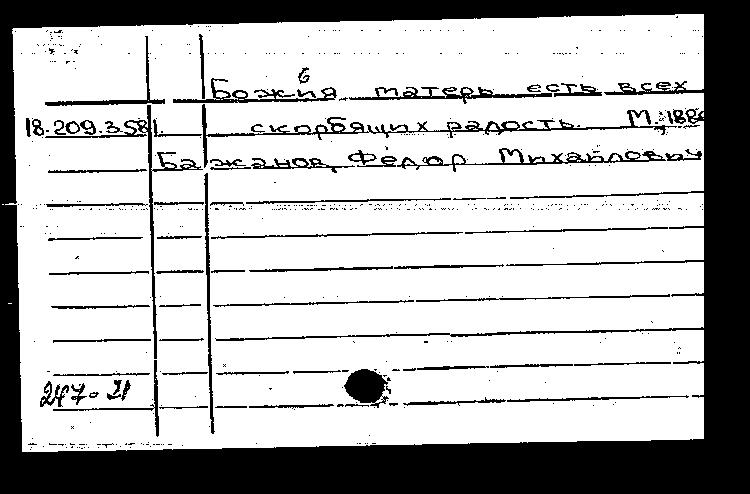 б
Божия матерь есть всех
18.209.3.58 1. скорбящих радость. М.,
Бажанов, Фёдор Михайлович
247-21